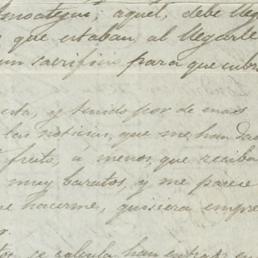 aquel, debe lleg
que estaban al llegarle
un sacrificio para que cubra
y tenido por de mas
las noticias, que me han da
fruta, a menos que reciba
muy baratos, y me parece
hacerme, quisiera empre
se calcula han entrado en